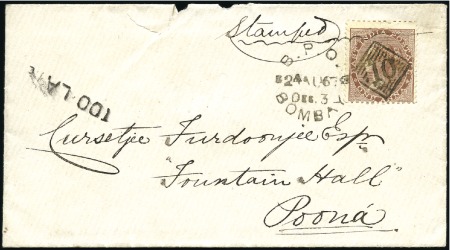 Stamped
B.P.O.
24 AU 67
DEL. 3
BOMBAY
INDIA
TOO LATE
Cursetjee Furdoonjee Esqr
"Fountain Hall"
Pooná